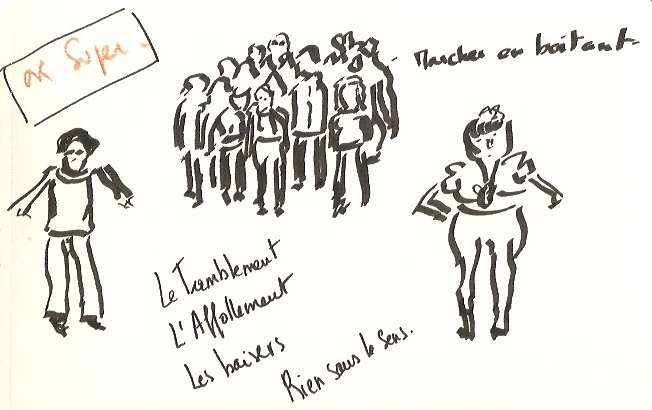 ok Super.
Marcher en boitant.
Le Tremblement
L'Affollement
Les baisers
Rien sans le sens.